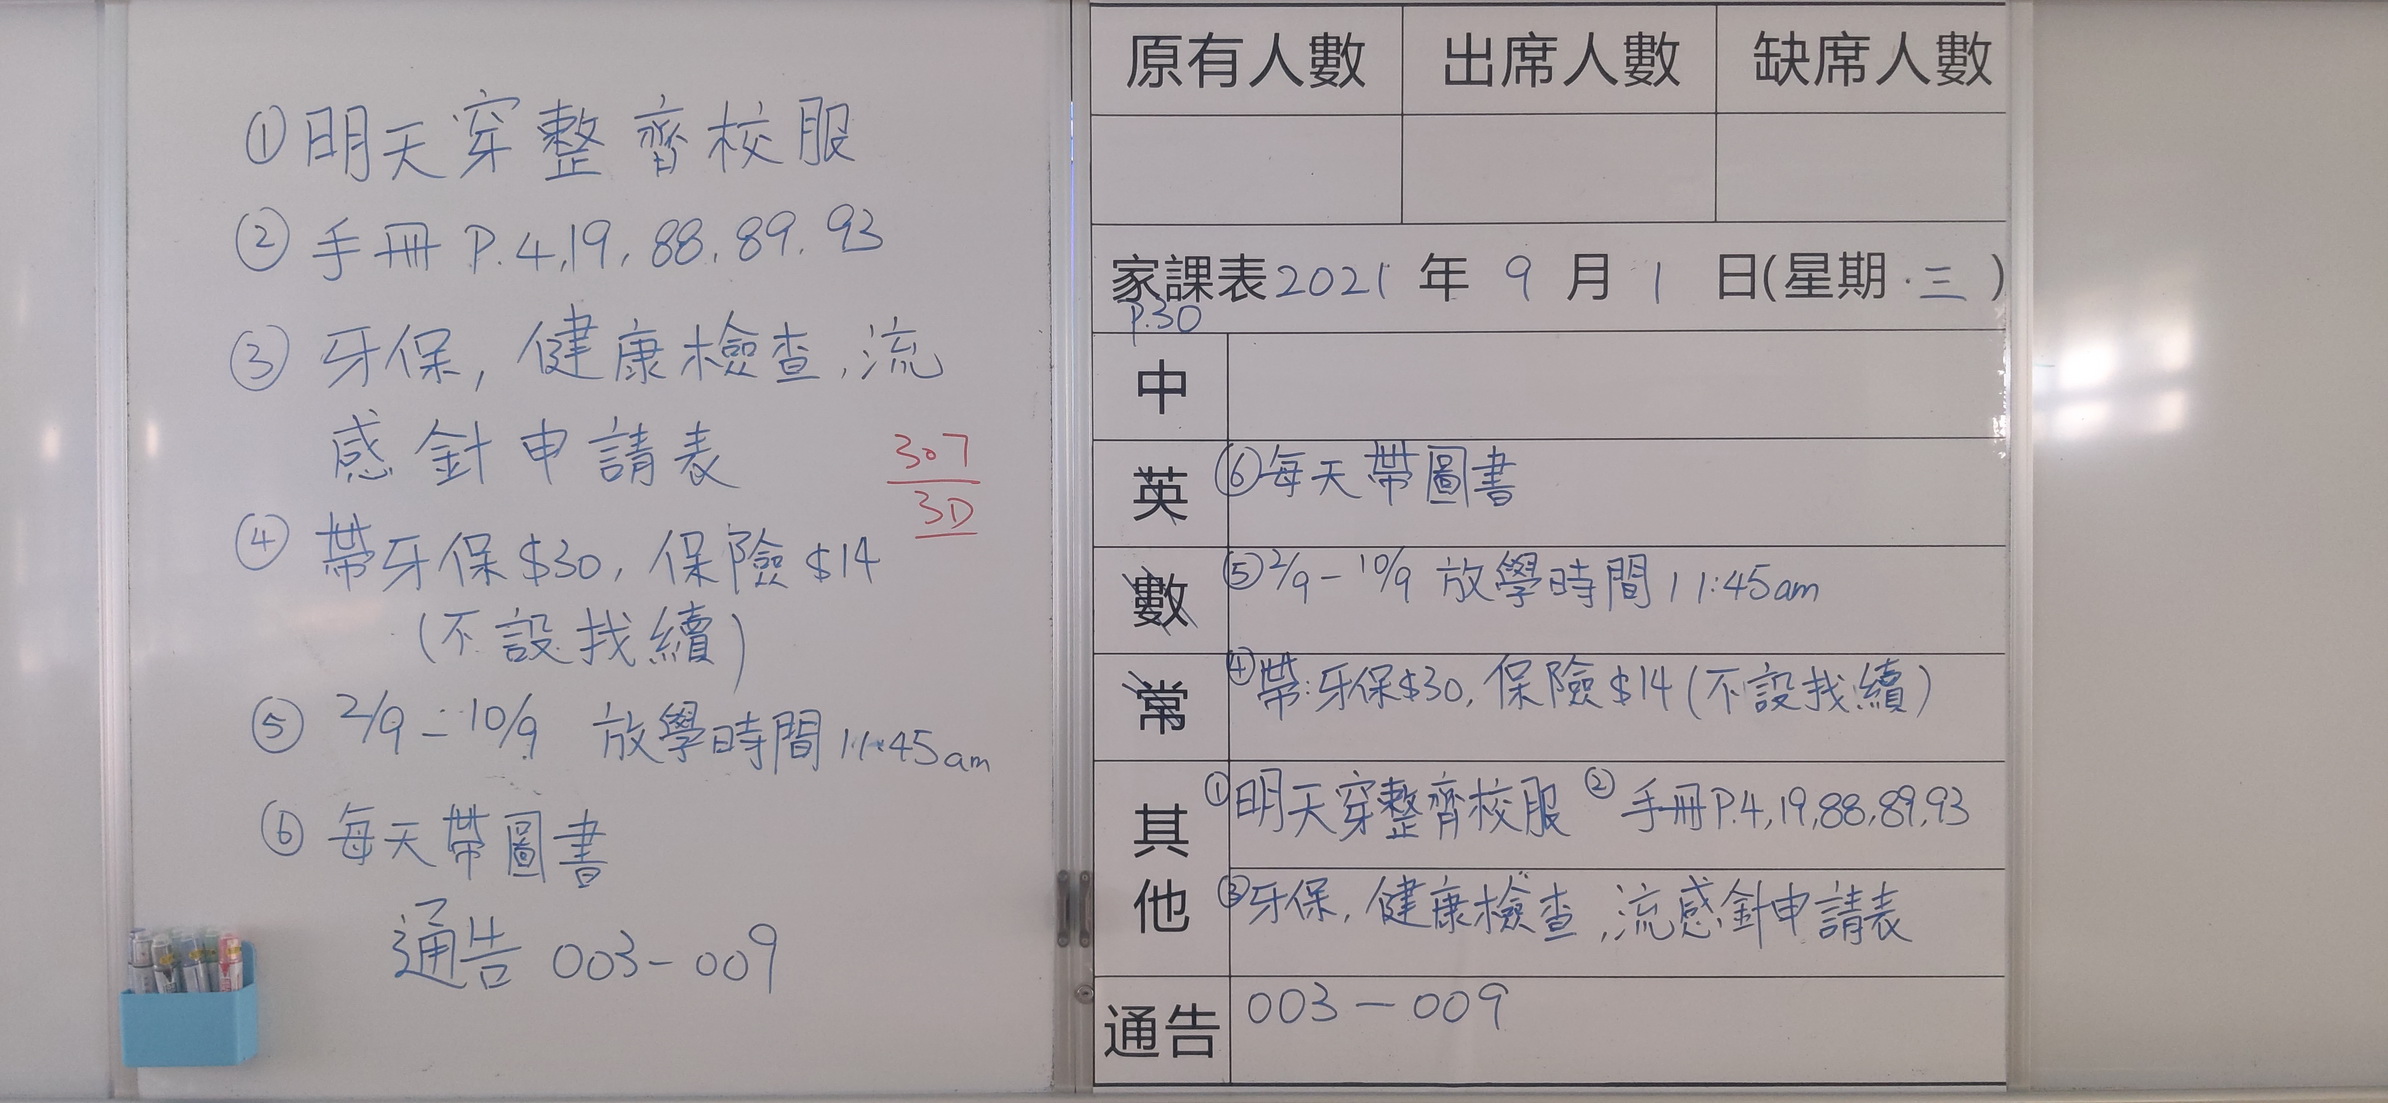 ①明天穿整齊校服
②手冊 P.4,19,88,89,93
③牙保,健康檢查,流
感針申請表
307
3D
④帶牙保$30,保險$14
(不設找續)
⑤2/9-10/9 放學時間11:45am
⑥每天帶圖書
通告 003-009
原有人數 出席人數 缺席人數
家課表2021年9月1日(星期三)
P.30
中
英 ⑥每天帶圖書
數 ⑤2/9-10/9 放學時間11:45am
常 ④帶:牙保$30,保險$14(不設找續)
其他 ①明天穿整齊校服 ②手冊P.4,19,88,89,93
③牙保,健康檢查,流感針申請表
通告 003-009